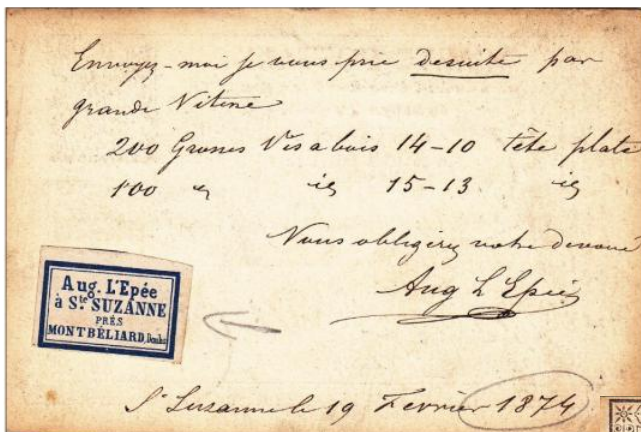 Envoyez-moi je vous prie desuite par
grande Vitesse
200 Grosses Vis a bois 14-10 tête plate
100 " id 15-13 id
Vous obligerez votre devoué
Aug L'Epée
Aug. L'Epée
à Ste. SUZANNE
PRÈS
MONTBÉLIARD, Doubs
Ste Suzanne le 19 Fevrier 1874